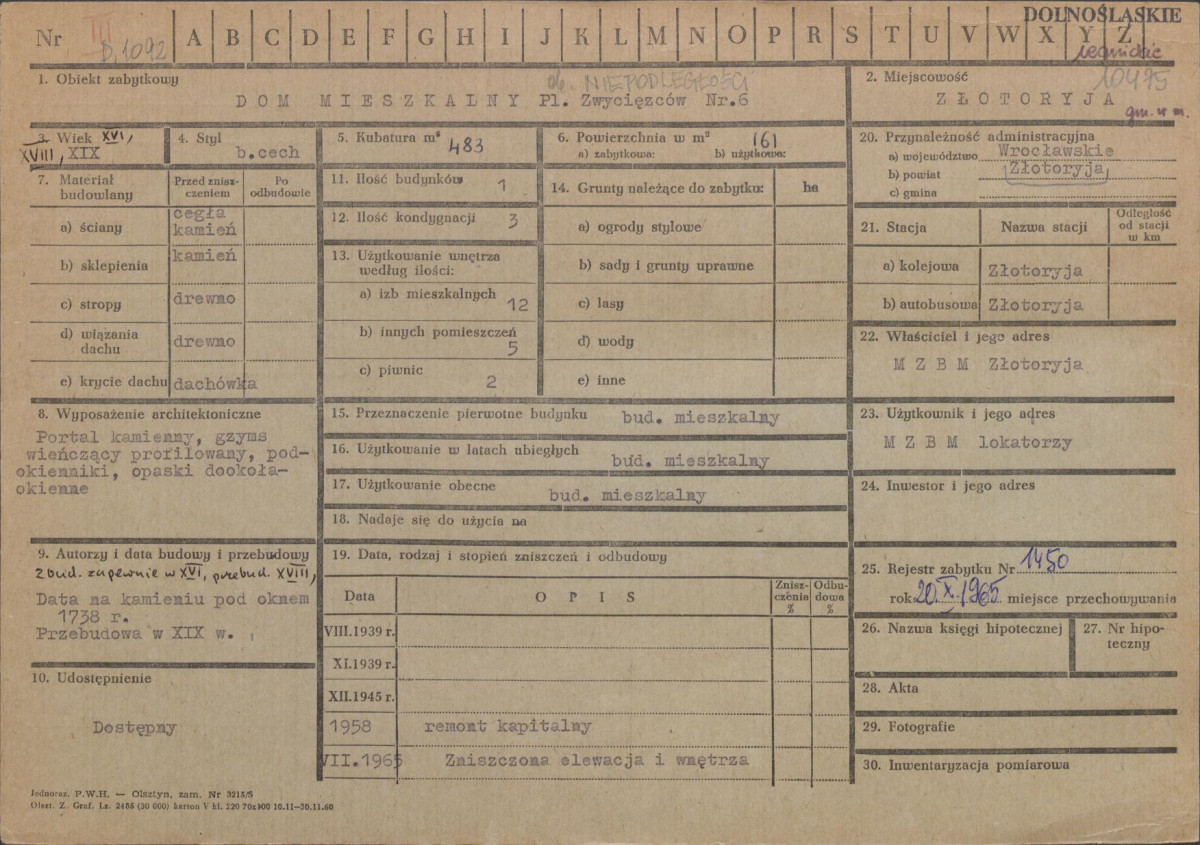 DOLNOŚLĄSKIE
Nr III D.1092 A B C D E F G H I J K L M N O P R S T U V W X Y Z
legnickie
10475
1. Obiekt zabytkowy
NIEPODLEGŁOŚCI
DOM MIESZKALNY Pl. Zwycięzców Nr.6
2. Miejscowość
ZŁOTORYJA
gm. w m.
3. Wiek XVI,
XVIII, XIX
4. Styl
b.cech
5. Kubatura m³
483
6. Powierzchnia w m² 161
a) zabytkowa: b) użytkowa:
7. Materiał budowlany
Przed zniszczeniem
Po odbudowie
a) ściany
cegła
kamień
b) sklepienia
kamień
c) stropy
drewno
d) wiązania dachu
drewno
e) krycie dachu
dachówka
8. Wyposażenie architektoniczne
Portal kamienny, gzyms
wieńczący profilowany, pod-
okienniki, opaski dookoła-
okienne
9. Autorzy i data budowy i przebudowy
2 bud. zapewnie w XVI, przebud. XVIII,
Data na kamieniu pod oknem
1738 r.
Przebudowa w XIX w.
10. Udostępnienie
Dostępny
11. Ilość budynków 1
12. Ilość kondygnacji 3
13. Użytkowanie wnętrza
według ilości:
a) izb mieszkalnych
12
b) innych pomieszczeń
5
c) piwnic
2
14. Grunty należące do zabytku: ha
a) ogrody stylowe
b) sady i grunty uprawne
c) lasy
d) wody
e) inne
15. Przeznaczenie pierwotne budynku bud. mieszkalny
16. Użytkowanie w latach ubiegłych bud. mieszkalny
17. Użytkowanie obecne bud. mieszkalny
18. Nadaje się do użycia na
19. Data, rodzaj i stopień zniszczeń i odbudowy
Data
OPIS
Zniszczenia %
Odbudowa %
VIII.1939 r.
XI.1939 r.
XII.1945 r.
1958 remont kapitalny
VII.1965 Zniszczona elewacja i wnętrza
20. Przynależność administracyjna
a) województwo Wrocławskie
b) powiat Złotoryja
c) gmina
21. Stacja
Nazwa stacji
Odległość
od stacji
w km
a) kolejowa Złotoryja
b) autobusowa Złotoryja
22. Właściciel i jego adres
M Z B M Złotoryja
23. Użytkownik i jego adres
M Z B M lokatorzy
24. Inwestor i jego adres
25. Rejestr zabytku Nr 1450
rok 20.X.1965 miejsce przechowywania
26. Nazwa księgi hipotecznej
27. Nr hipo-
teczny
28. Akta
29. Fotografie
30. Inwentaryzacja pomiarowa
Jednoraz. P.W.H. — Olsztyn, zam. Nr 3215/S
Olszt. Z. Graf. Lz. 2455 (30 000) karton V kl. 220 70x100 10.11—30.11.60